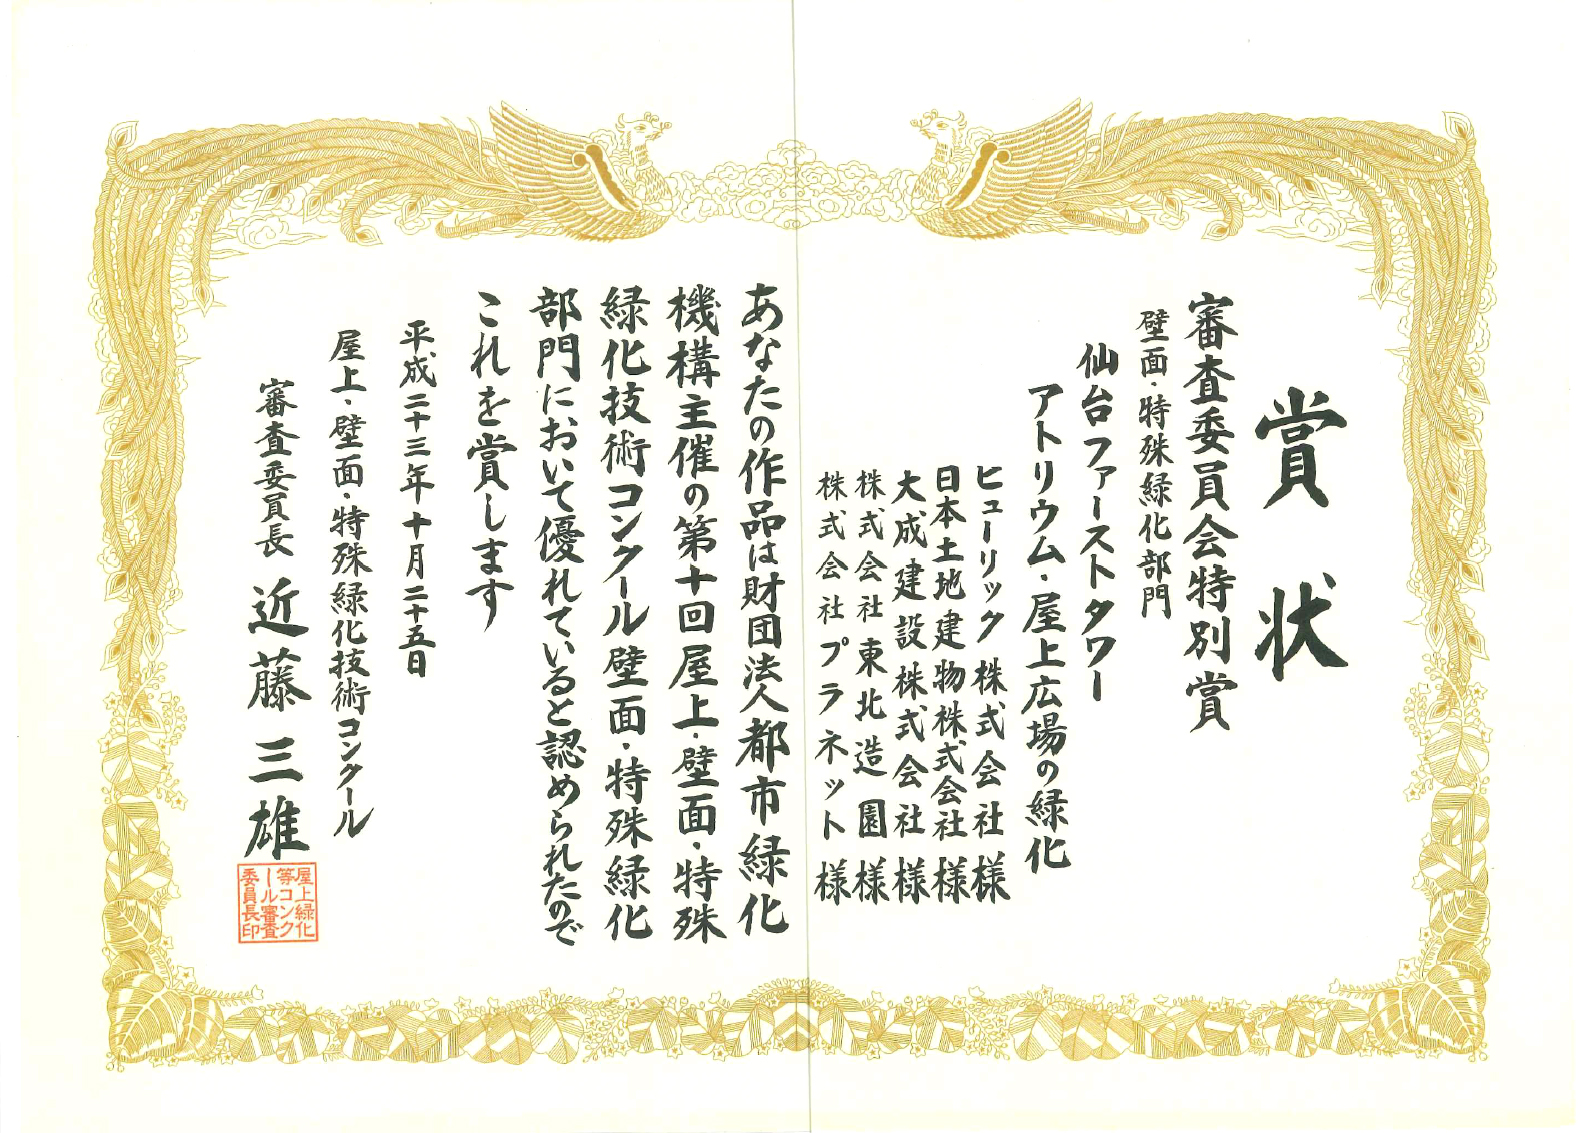 賞状
審査委員会特別賞
壁面・特殊緑化部門
仙台ファーストタワー
アトリウム・屋上広場の緑化
ヒューリック株式会社様
日本土地建物株式会社様
大成建設株式会社様
株式会社東北造園様
株式会社プラネット様
あなたの作品は財団法人都市緑化
機構主催の第十回屋上・壁面・特殊
緑化技術コンクール壁面・特殊緑化
部門において優れていると認められたので
これを賞します
平成二十三年十月二十五日
屋上・壁面・特殊緑化技術コンクール
審査委員長 近藤三雄
屋上緑化
等コンク
ール審査
委員長印